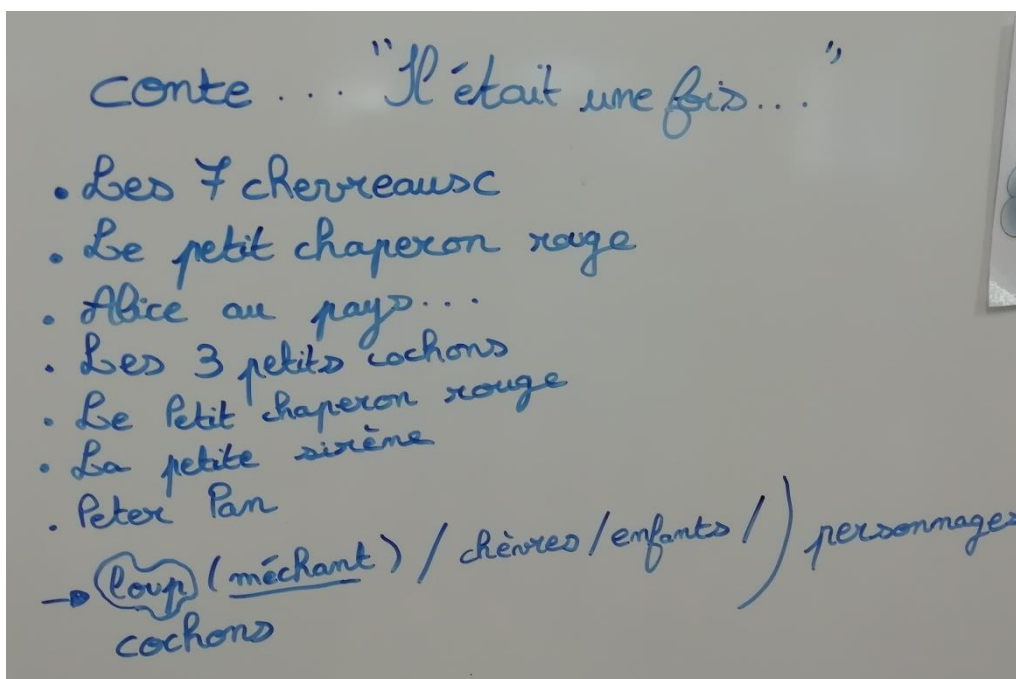 conte ... "Il était une fois..."
. Les 7 chevreaux
. Le petit chaperon rouge
. Alice au pays...
. Les 3 petits cochons
. Le Petit chaperon rouge
. La petite sirène
. Peter Pan
→ loup (méchant) / chèvres / enfants / ) personnages
cochons